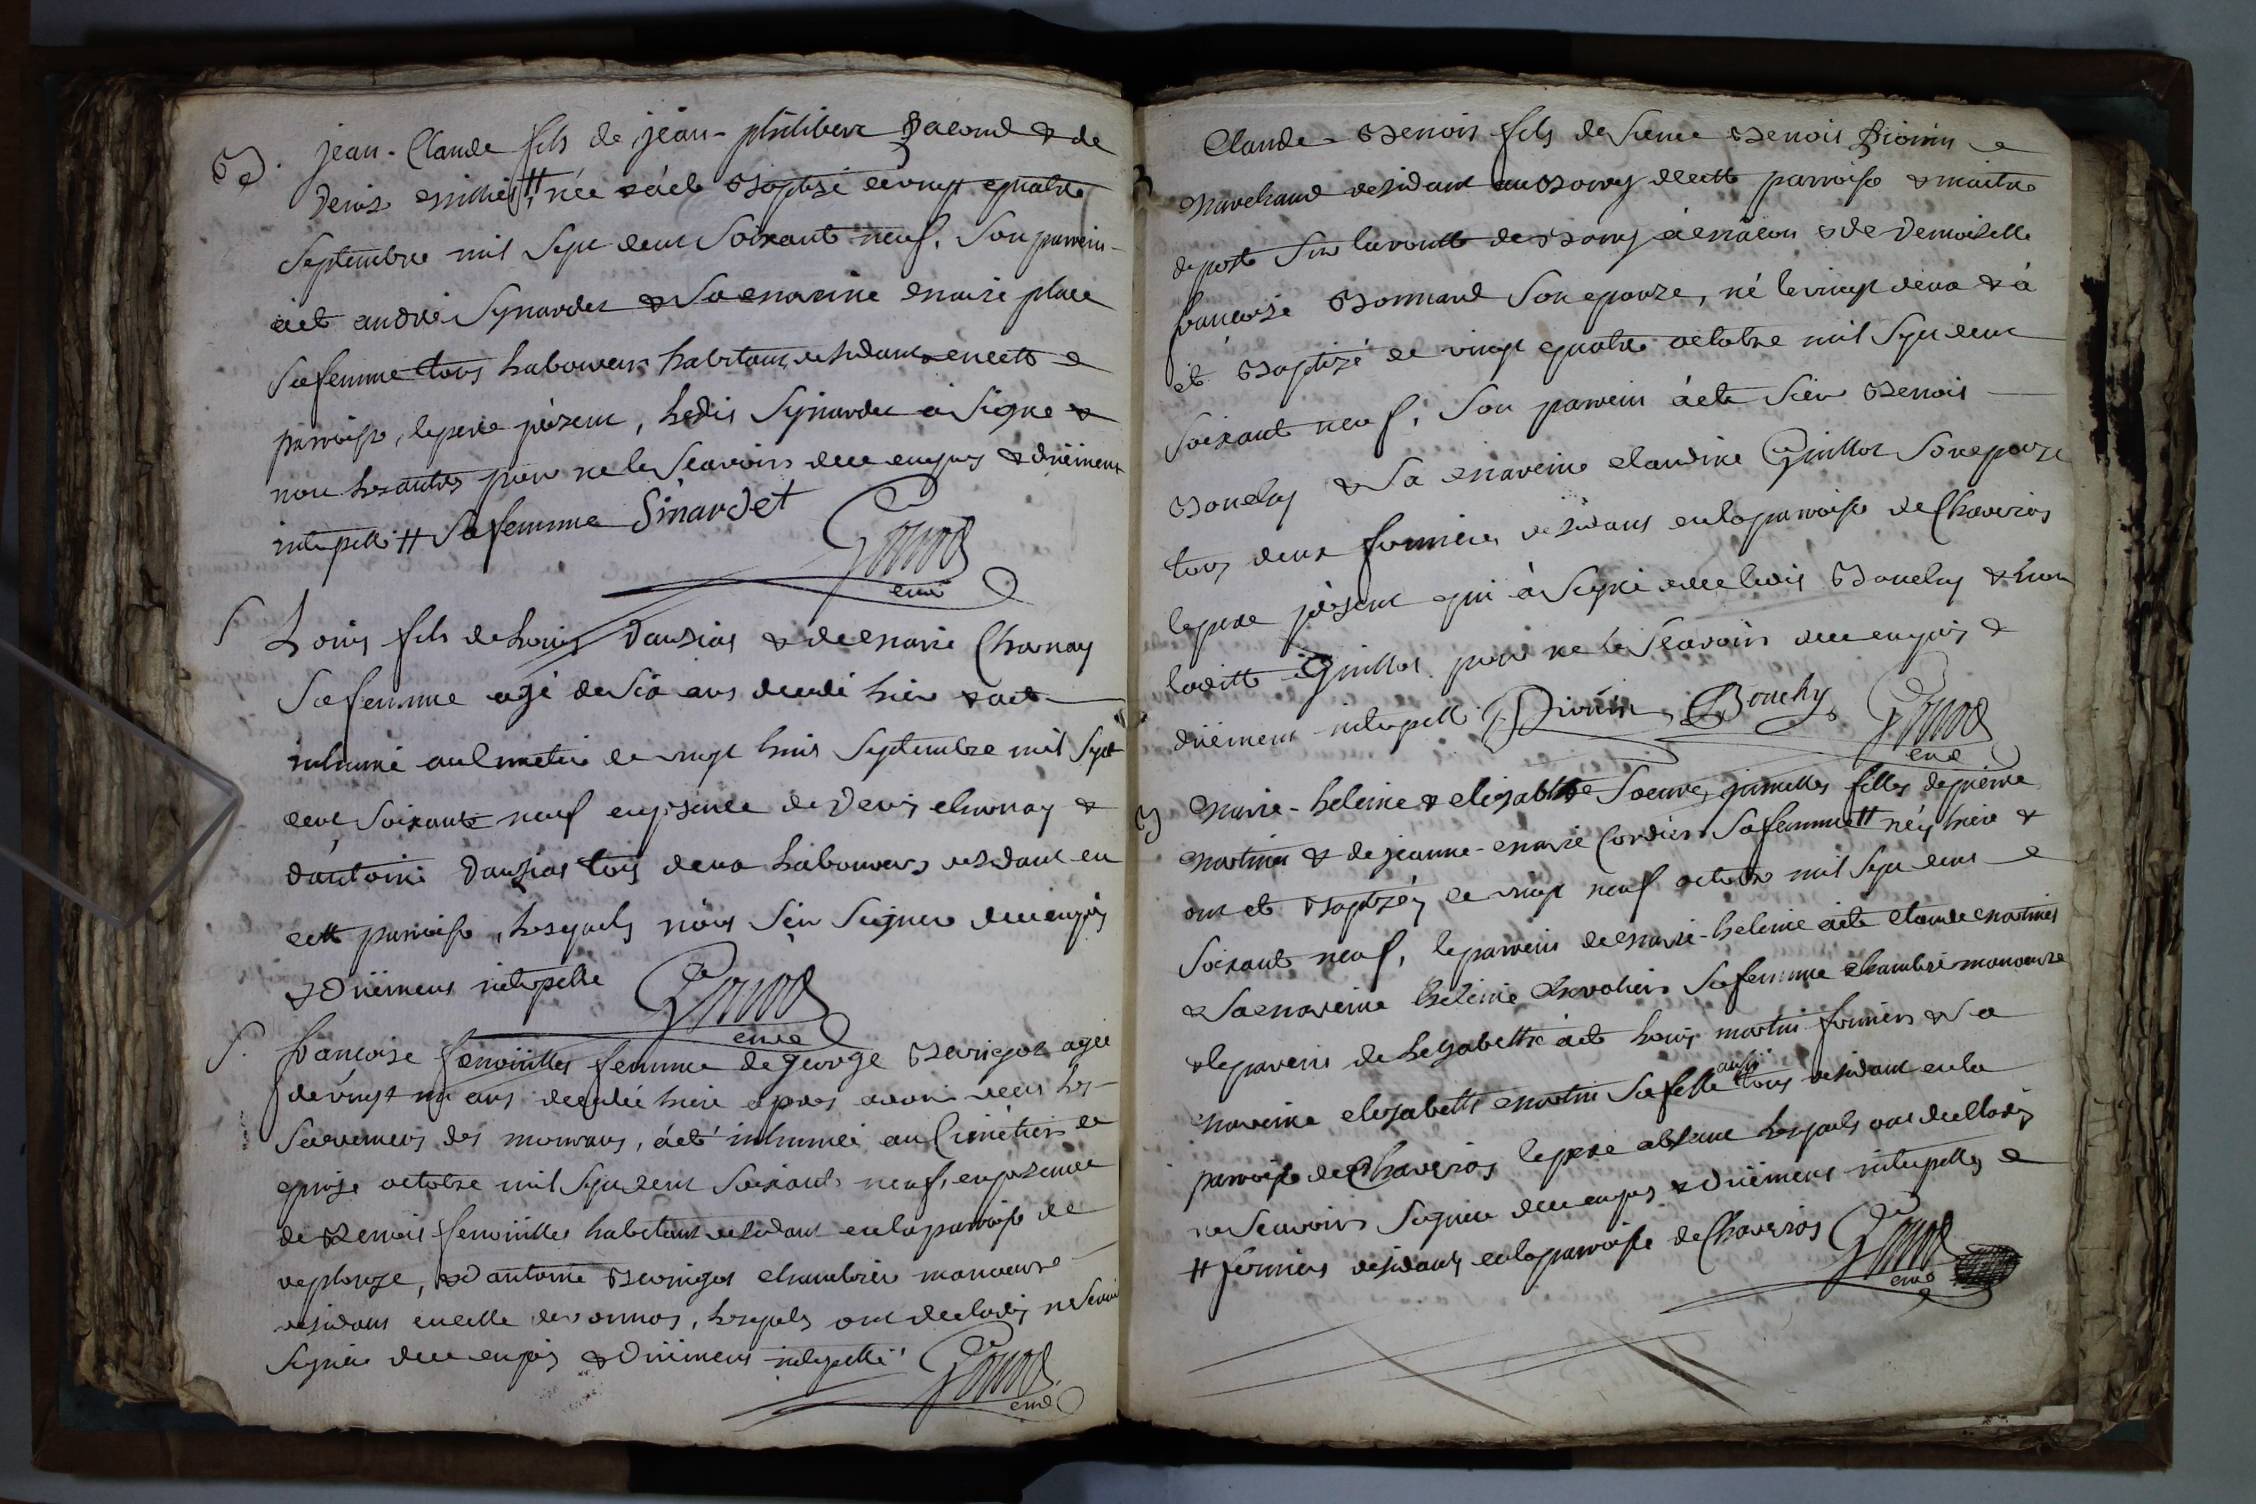 B. jean-Claude fils de jean-philibert Pacoud & de
Denise millier ++ née & été Baptizé le vingt quatre
Septembre mil Sept cent Soixante neuf. Son parrein
a été andré Synardet & Sa marrine marie place
Sa femme tous laboureurs habitans residans en cette
parroisse, le pere présent, ledit Synardet a Signé &
non les autres pour ne le Scavoirs de ce enquis & düement
interpellé ++ Sa femme Sinardet
Gonod
curé
S Louis fils de Louis Dauxias & de marie Charnay
Sa femme agé de Six ans decedé hier & a été
inhumé au Cimetiere le vingt huit Septembre mil Sept
cent Soixante neuf en présence de Denis charnay &
d'antoine Dauxias tous deux laboureurs residans en
cette parroisse, lesquels n'ont Sçu Signer de ce enquis
& Düement interpellé Gonod
curé
S. françoise fenouillet femme de george agée
de vingt un ans decedée hier apres avoir recu les
Sacremens des mourans, a été inhumée au Cimetiere le
quinze octobre mil Sept cent Soixante neuf, en présence
de Benoit fenouillet habitant residant en la parroisse de
replonge, & d'antoine manoeuvre
residans en celle de vonnas, lesquels ont declarés ne Scavoir
Signer de ce enquis & Düement interpellé Gonod
curé
Claude-Benoit fils de Sieur Benoit Divoin
marchand residant au Bourg de cette parroisse & maitre
de poste Sur la route de Bourg à mâcon & de Demoiselle
françoise Bonnard Son epouze, né le vingt deux & a
été Baptizé le vingt quatre octobre mil Sept cent
Soixante neuf, Son parrein a été Sieur Benoit
Bouchy & Sa marreine claudine Guillot Son epouze
tous deux fermiers residans en la parroisse de Chaveiriat
le pere présent qui à Signé avec ledit Bouchy & non
laditte Guillot pour ne le Scavoir de ce enquis &
düement interpellé. Bouchy Gonod
curé
B marie-heleine & elizabeth Soeures jumelles filles de pierre
martin & de jeanne-marie Cordier Sa femme ++ néés hier &
ont été Baptizéés le vingt neuf octobre mil Sept cent
Soixante neuf, le parrein de marie-heleine a été claude martin
& Sa marreine heleine chevalier Sa femme manoeuvre
& le parrein de elizabeth a été Louis martin fermier & Sa
marreine elizabeth martin Sa fille aussi tous residans en la
parroisse de Chaveiriat le pere absent lesquels ont declarés
ne Scavoirs Signer de ce enquis & Düement interpellés
++ fermiers residans en la parroisse de Chaveiriat Gonod
curé